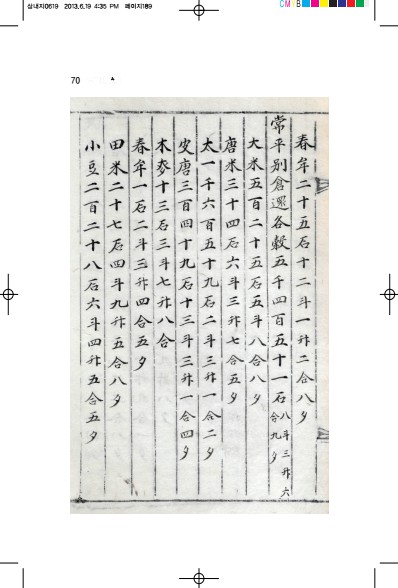 삼내지0619 2013.6.19 4:35 PM 페이지189
CM B
70
春牟二十五石十二斗一升二合八夕
常平別倉還各穀五千四百五十一石八斗三升六合九夕
大米五百二十五石五斗八合八夕
唐米三十四石六斗三升七合五夕
太一千六百五十九石二斗三升一合二夕
皮唐三百四十九石十三斗三升一合四夕
木麥十三石三斗七升八合
春牟一石二斗三升四合五夕
田米二十七石四斗九升五合八夕
小豆二百二十八石六斗四升五合五夕